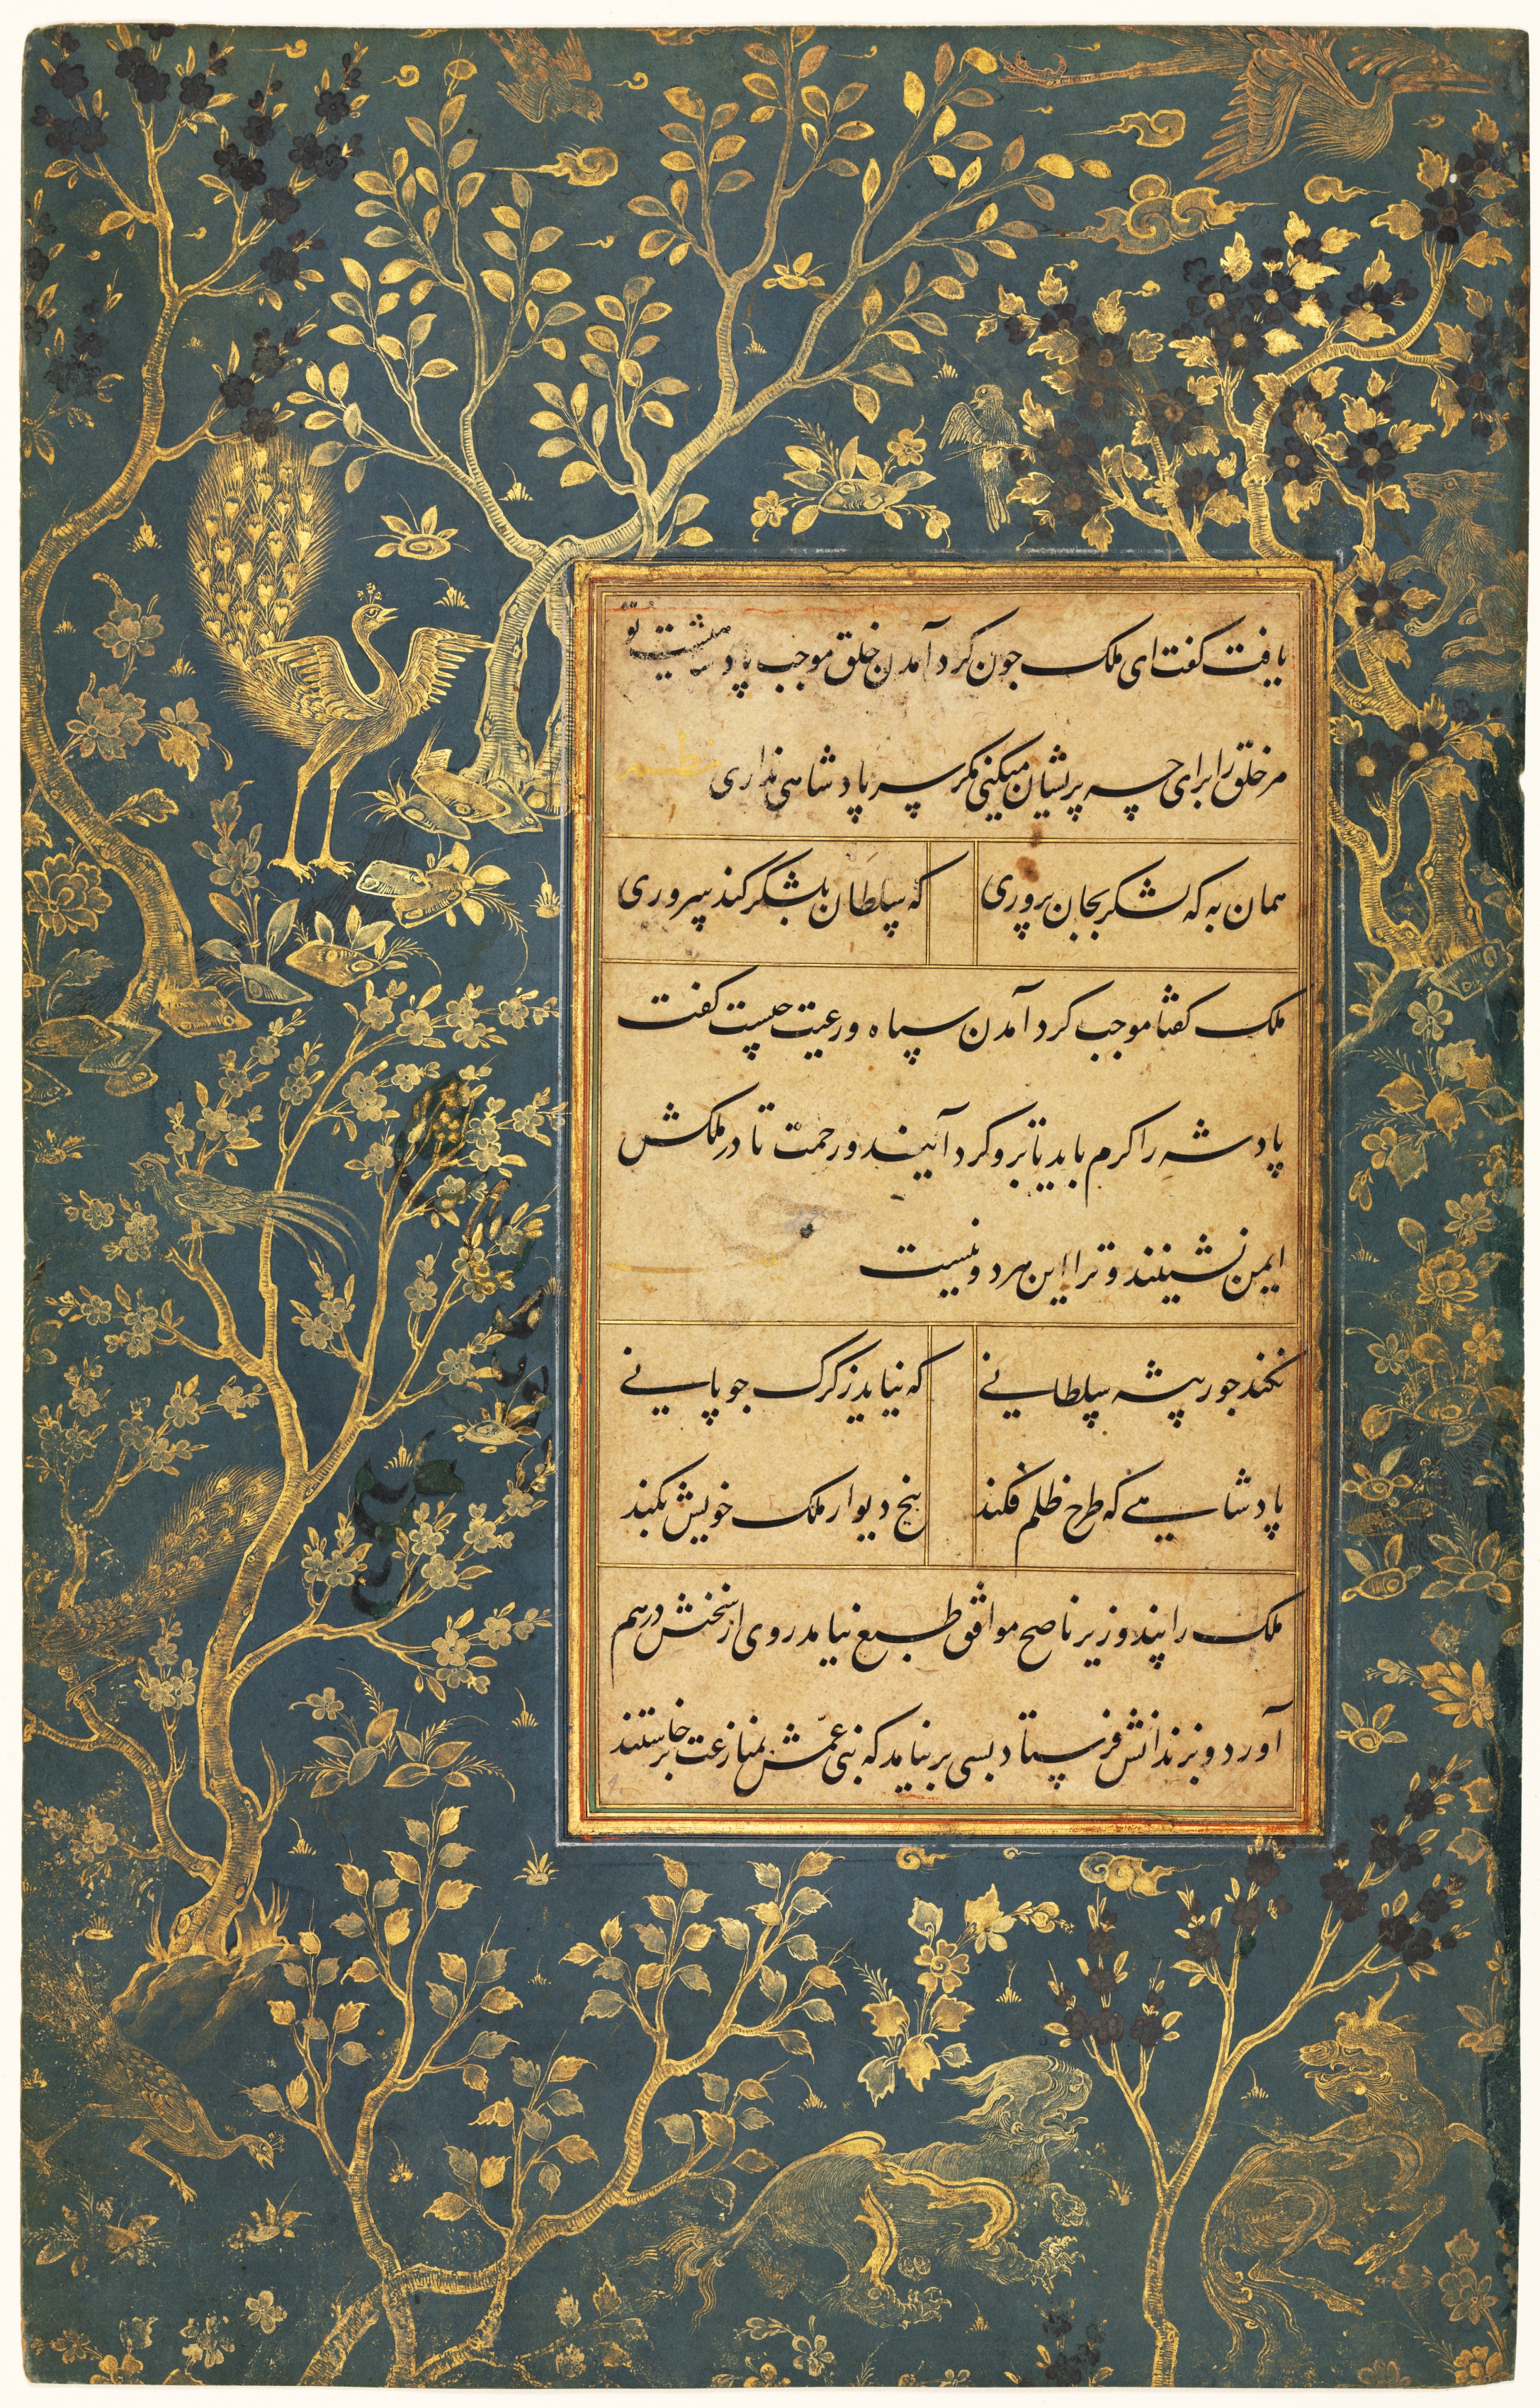 یافت کفت ای ملک جون کرد آمدن خلق موجب پادشیست تو
مر خلق را برای چه پریشان میکنی مکر سر پادشاهی نداری نظم
همان به که لشکر بجان پروری که سلطان بلشکر کند سروری
ملک کفتا موجب کرد آمدن سپاه و رعیت چیست کفت
پادشه را کرم باید تا برو کرد آیند و رحمت تا در ملکش
ایمن نشینند و ترا این هر دو نیست
نکند جور پیشه سلطانی که نیاید ز کرک جوپانی
پادشاهی که طرح ظلم فکند بیخ دیوار ملک خویش بکند
ملک را پند وزیر ناصح موافق طبع نیامد روی از سخنش درهم
آورد و بزندانش فرستاد بسی بر نیامد که بنی عمّش بمنازعت برخاستند